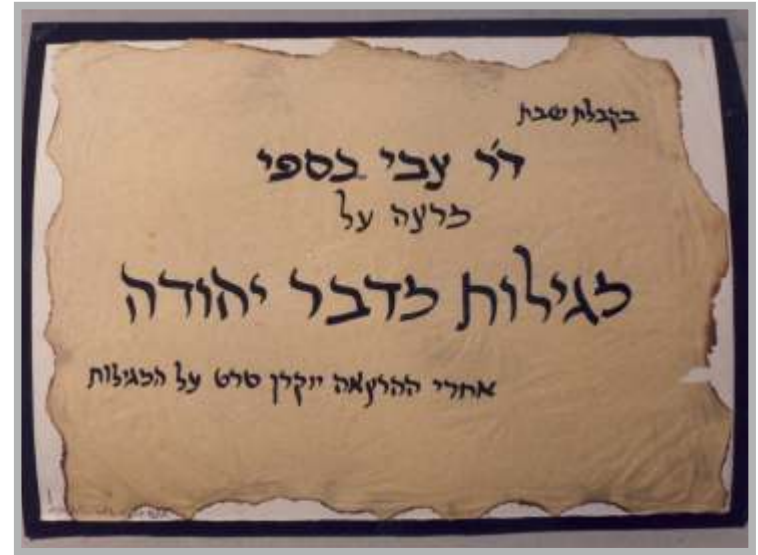 בקבלת שבת
ד"ר צבי כספי
מרצה על
מגילות מדבר יהודה
אחרי ההרצאה יוקרן סרט על המגילות